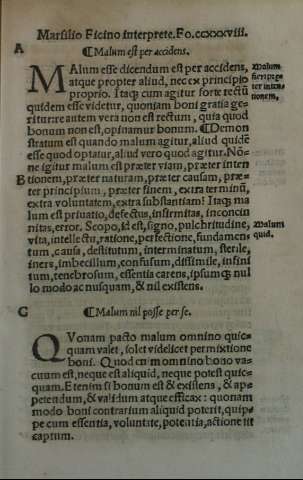 Marsilio Ficino interprete. Fo. ccxxxviii.
A
¶Malum est per accidens.
MAlum esse dicendum est per accidens,
atque propter aliud, nec ex principio
proprio. Itaqꝫ cum agitur forte rectũ
quidem esse videtur, quoniam boni gratia ge-
ritur: re autem vera non est rectum, quia quod
bonum non est, opinamur bonum. ¶Demon
stratum est quando malum agitur, aliud quidē
esse quod optatur, aliud vero quod agitur. Nō-
ne igitur malum est præter viam, præter inten
tionem, præter naturam, præter causam, præ-
ter principium, præter finem, extra terminũ,
extra voluntatem, extra substantiam? Itaqꝫ ma
lum est priuatio, defectus, infirmitas, inconcin
nitas, error. Scopo, id est, signo, pulchritudine,
vita, intellectu, ratione, perfectione, fundamen
tum, causa, destitutum, interminatum, sterile,
iners, imbecillum, confusum, dissimile, infini
tum, tenebrosum, essentia carens, ipsumqꝫ nul
lo modo ac nusquam, & nil existens.
Malum
fieri præ-
ter inten
tionem.
B
Malum
quid.
C
¶Malum nil posse per se.
QVonam pacto malum omnino quic-
quam valet, solet videlicet permixtione
boni. Quod enim omnino bono va-
cuum est, neque est aliquid, neque potest quic-
quam. Etenim si bonum est & existens, & ap-
petendum, & validum atque efficax: quonam
modo boni contrarium aliquid poterit, quip-
pe cum essentia, voluntate, potentia, actione sit
captum.